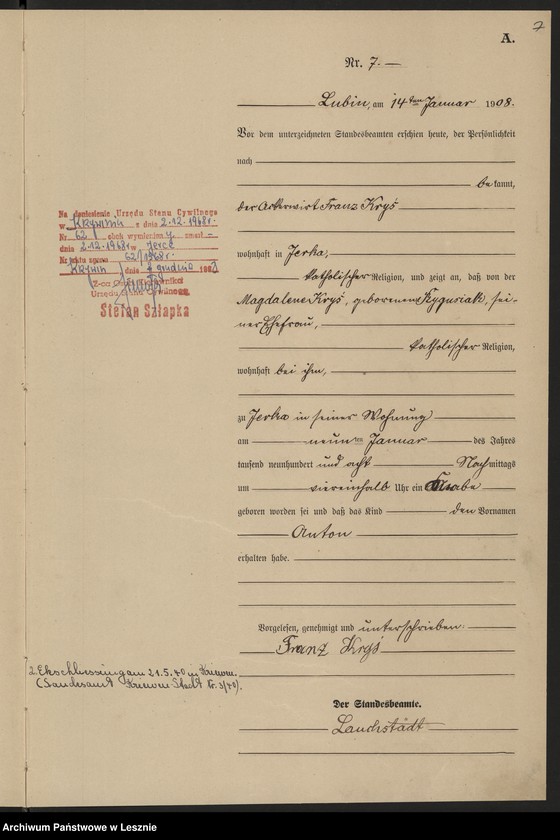 7
A.
Nr. 7.
Lubin, am 14ten Januar 1908.
Vor dem unterzeichneten Standesbeamten erschien heute, der Persönlichkeit
nach
bekannt,
der Ackerwirt Franz Kryś
wohnhaft in Jerka,
katholischer Religion, und zeigt an, daß von der
Magdalene Kryś, geborenen, sei-
ner Ehefrau,
katholischer Religion,
wohnhaft bei ihm,
zu Jerka in seiner Wohnung
am neunten Januar des Jahres
tausend neunhundert und acht Nachmittags
um viereinhalb Uhr ein Knabe
geboren worden sei und daß das Kind den Vornamen
Anton
erhalten habe.
Vorgelesen, genehmigt und unterschrieben:
Franz Kryś
Der Standesbeamte.
Lauchstädt
Na doniesienie Urzędu Stanu Cywilnego
w Krzywiń z dnia 2.12.1968r.
Nr. 62 obok wymieniony zmarł
dnia 2.12.1968r w Jerce
Nr aktu zgonu 62/1968r.
Krzywiń dnia 4 grudnia 1968
Urzędu Stanu Cywilnego
Stefan Szłapka
2. Eheschliessung am 21.5.40 in Kriewen.
(Standesamt Kriewen Stadt Nr. 3/40).
Archiwum Państwowe w Lesznie